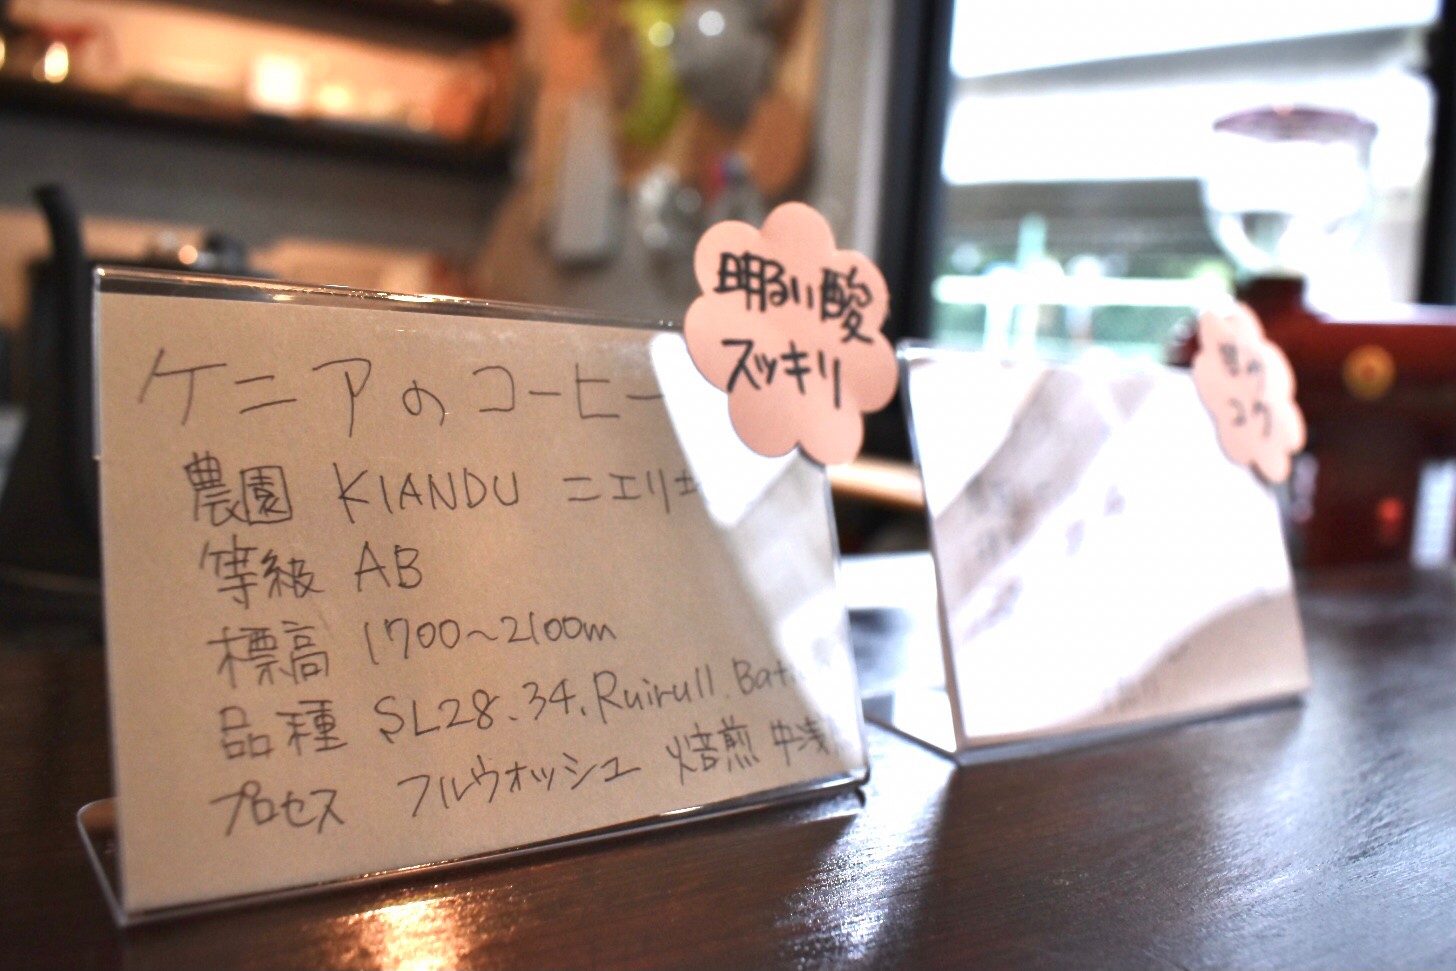 明るい酸
スッキリ
ケニアのコーヒー
農園 KIANDU ニエリ
等級 AB
標高 1700~2100m
品種 SL28.34.Ruiru11.
プロセス フルウォッシュ 焙煎 中浅
コク